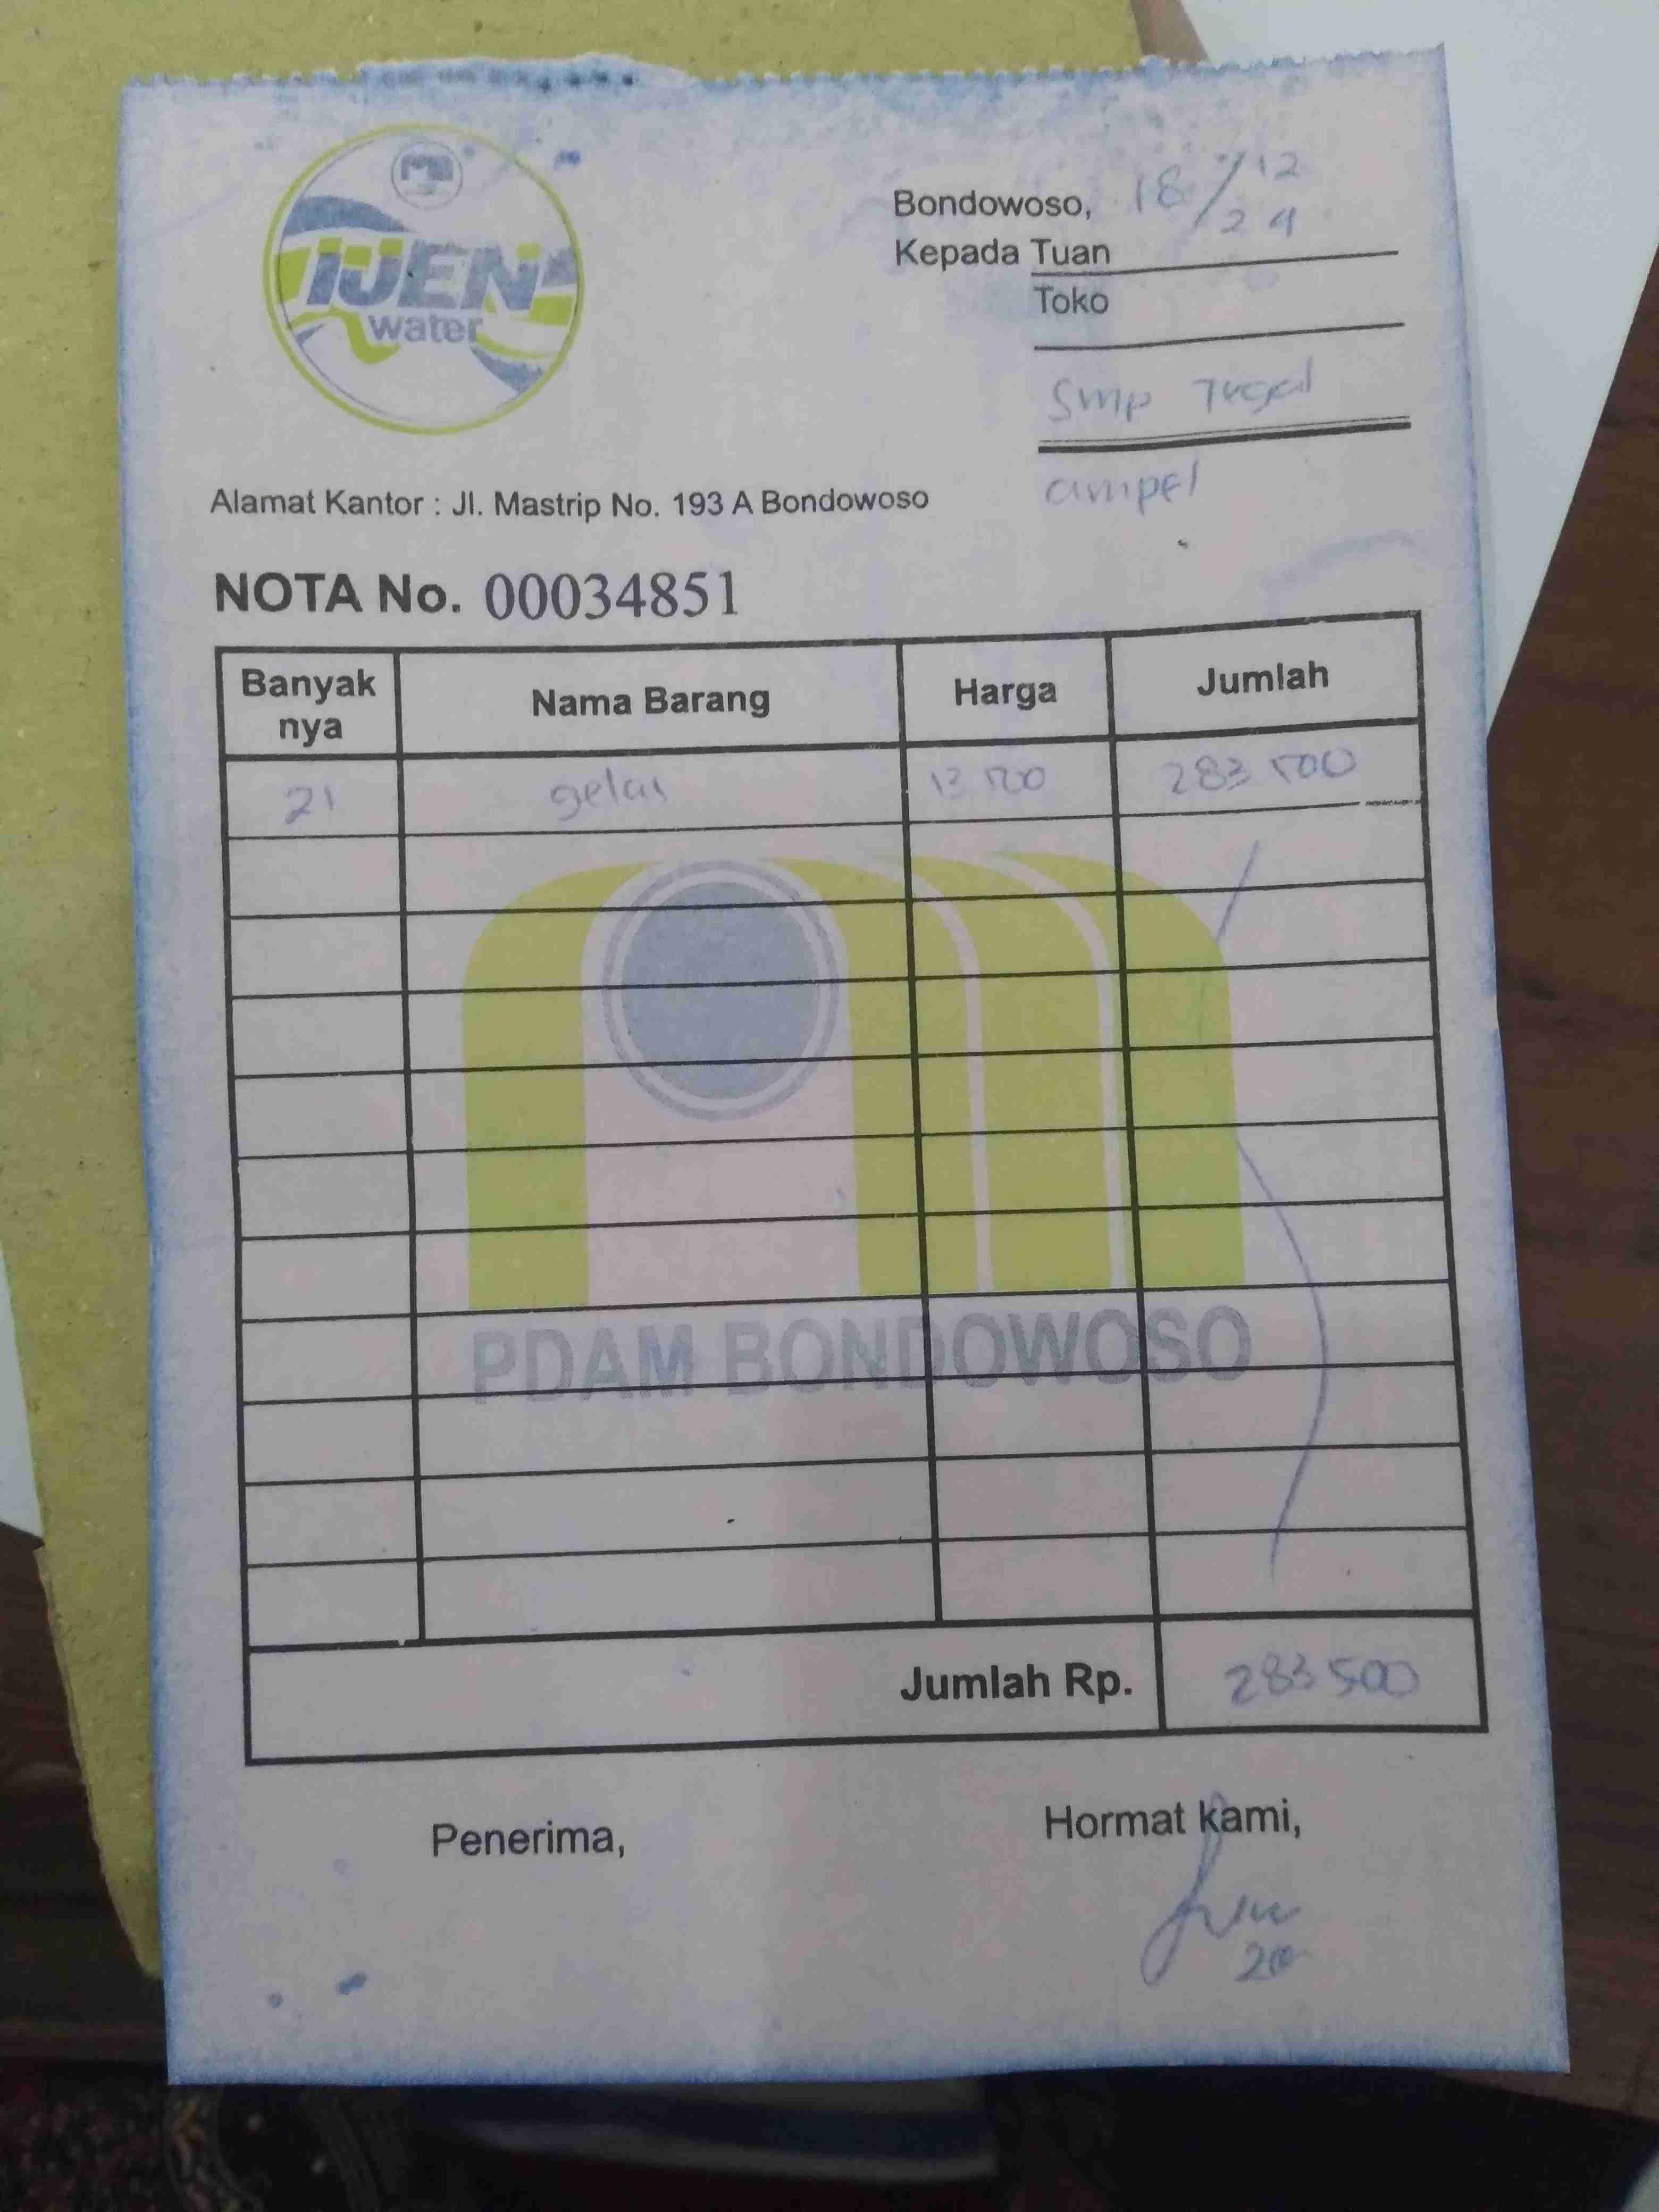 IJEN
water
Bondowoso, 18/12 24
Kepada Tuan
Toko
Smp Tegal
ampel
Alamat Kantor : Jl. Mastrip No. 193 A Bondowoso
NOTA No. 00034851
Banyak nya Nama Barang Harga Jumlah
21 gelas 13 500 283 500
PDAM BONDOWOSO
Jumlah Rp. 283 500
Penerima, Hormat kami,